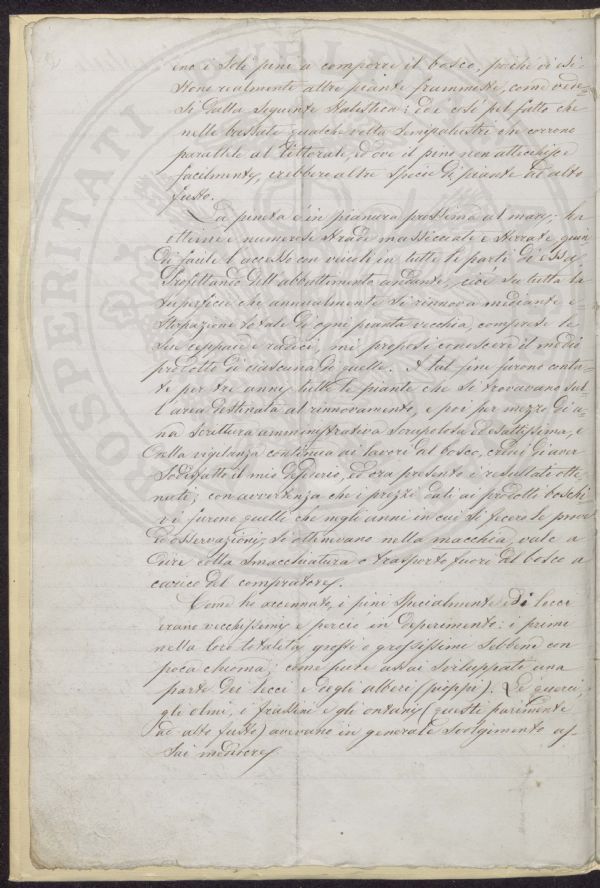 eno i soli pini a comporre il bosco, poiche di esi-
stono realmente altre piante frammiste, come vede-
si dalla seguente statistica: ed è così pel fatto che
nelle bassate qualche volta semipalustri che corrono
parallele al littorale, ed ove il pino non attecchisce
facilmente, crebbero altre specie di piante ad alto
fusto.
La pineta è in pianura prossima al mare; ha
ottime e numerose strade massicciate e sterrate, quin-
di facile l'accesso con veicoli in tutte le parti di essa.
Profittando dell'abbattimento andante, cioè su tutta la
superficie che annualmente si rinnova mediante e-
stirpazione totale di ogni pianta vecchia, comprese le
sue ceppaie e radici, mi proposi conoscere il medio
prodotto di ciascuna di quelle. A tal fine furono conta-
te per tre anni, tutte le piante che si trovavano sul-
l'area destinata al rinnovamento, e poi per mezzo di u-
na scrittura amministrativa scrupolosa ed esattissima, e
colla vigilanza continua ai lavori del bosco, credei di aver
sodisfatto il mio desiderio, ed ora presento i resultati otte-
nuti; con avvertenza che i prezzi dati ai prodotti boschi-
vi furono quelli che negli anni in cui si fecero le prove
ed osservazioni, si ottenevano nella macchia, vale a
dire colla smacchiatura o trasporto fuori del bosco a
carico del compratore.
Come ho accennato, i pini specialmente ed i lecci
erano vecchissimi e perciò in deperimento: i primi
nella loro totalità grossi o grossissimi sebbene con
poca chioma; come pure assai sviluppati una
parte dei lecci e degli alberi (pioppi). Le querci,
gli olmi, i frassini e gli ontani (questi parimente
ad alto fusto) avevano in generale svolgimento as-
sai mediocre.
PROSPERITATI